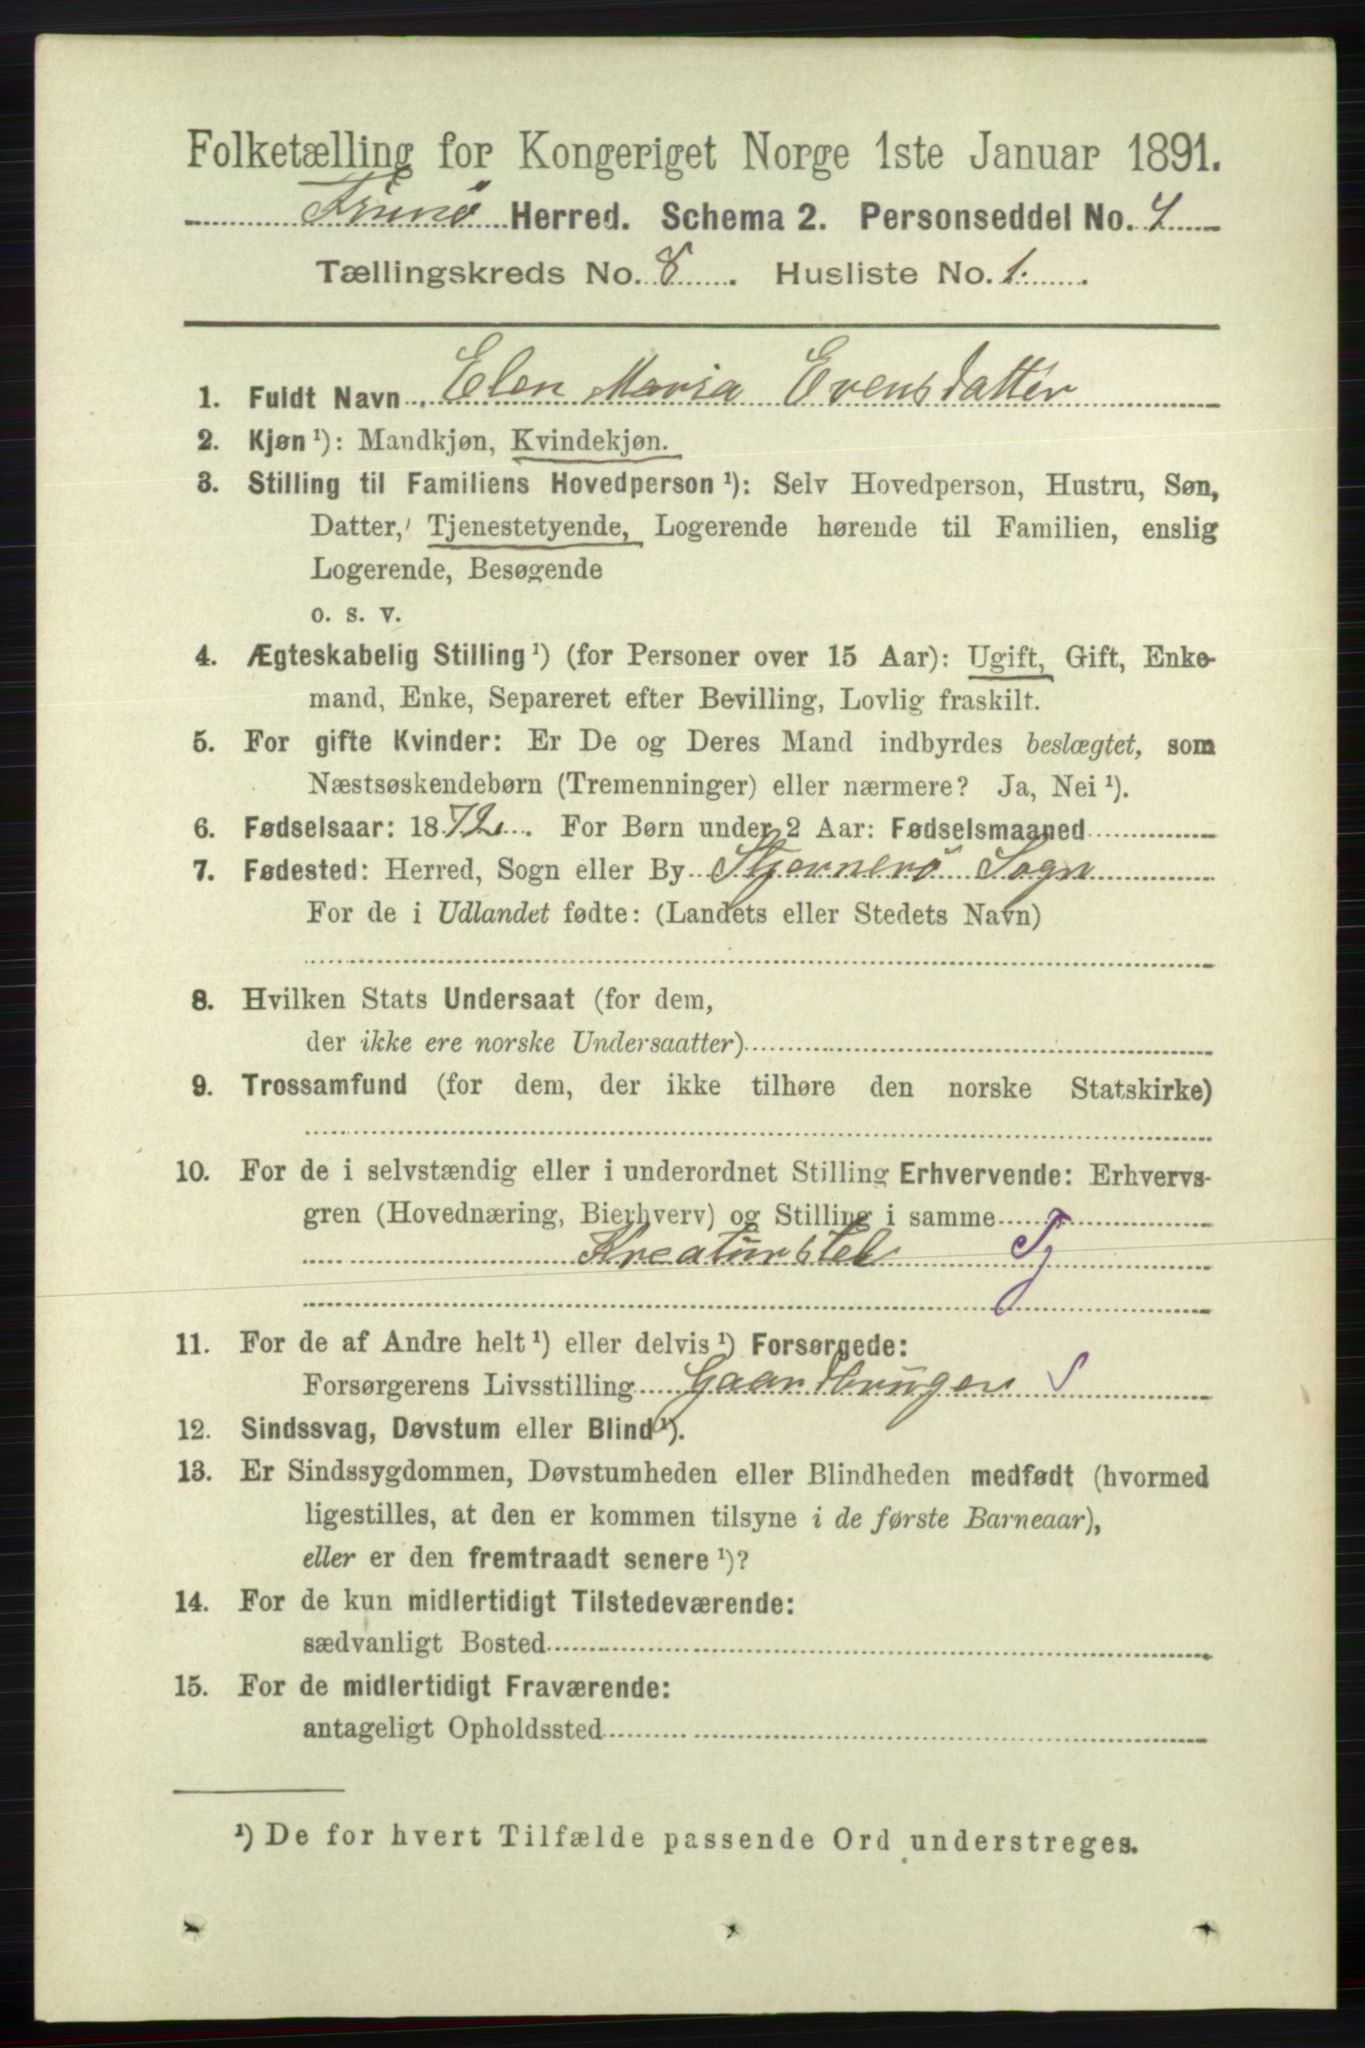 Folketælling for Kongeriget Norge 1ste Januar 1891.
Finnø Herred. Schema 2. Personseddel No. 7
Tællingskreds No. 8. Husliste No. 1.
1. Fuldt Navn Elen Maria Evensdatter
2. Kjøn ¹): Mandkjøn, Kvindekjøn.
3. Stilling til Familiens Hovedperson ¹): Selv Hovedperson, Hustru, Søn,
Datter, Tjenestetyende, Logerende hørende til Familien, enslig
Logerende, Besøgende
o. s. v.
4. Ægteskabelig Stilling ¹) (for Personer over 15 Aar): Ugift, Gift, Enke-
mand, Enke, Separeret efter Bevilling, Lovlig fraskilt.
5. For gifte Kvinder: Er De og Deres Mand indbyrdes beslægtet, som
Næstsøskendebørn (Tremenninger) eller nærmere? Ja, Nei ¹).
6. Fødselsaar: 1872. For Børn under 2 Aar: Fødselsmaaned
7. Fødested: Herred, Sogn eller By Stjernerø Sogn
For de i Udlandet fødte: (Landets eller Stedets Navn)
8. Hvilken Stats Undersaat (for dem,
der ikke ere norske Undersaatter)
9. Trossamfund (for dem, der ikke tilhøre den norske Statskirke)
10. For de i selvstændig eller i underordnet Stilling Erhvervende: Erhvervs-
gren (Hovednæring, Bierhverv) og Stilling i samme
Kreaturstel Tj
11. For de af Andre helt ¹) eller delvis ¹) Forsørgede:
Forsørgerens Livsstilling Gaardbruger S
12. Sindssvag, Døvstum eller Blind ¹).
13. Er Sindssygdommen, Døvstumheden eller Blindheden medfødt (hvormed
ligestilles, at den er kommen tilsyne i de første Barneaar),
eller er den fremtraadt senere ¹)?
14. For de kun midlertidigt Tilstedeværende:
sædvanligt Bosted
15. For de midlertidigt Fraværende:
antageligt Opholdssted
¹) De for hvert Tilfælde passende Ord understreges.